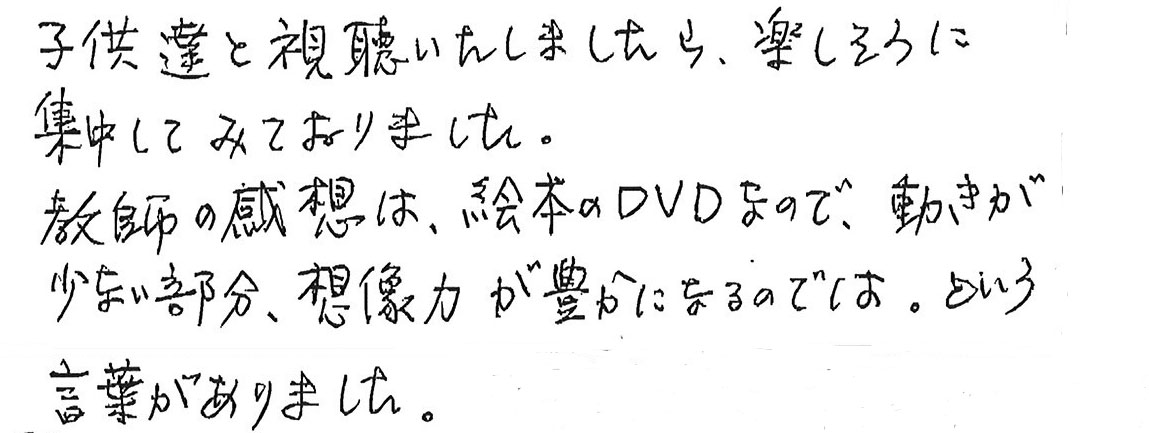 子供達と視聴いたしましたら、楽しそうに
集中してみておりました。
教師の感想は、絵本のDVDなので、動きが
少ない部分、想像力が豊かになるのでは。という
言葉がありました。